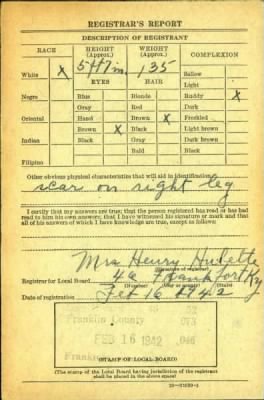 REGISTRAR'S REPORT
DESCRIPTION OF REGISTRANT
RACE HEIGHT (Approx.) WEIGHT (Approx.) COMPLEXION
White X 5 ft 7 in 135 Sallow
EYES HAIR Light
Negro Blue Blonde Ruddy X
Gray Red Dark
Oriental Hazel Brown Freckled
Brown X Black Light brown
Indian Black Gray Dark brown
Bald Black
Filipino
Other obvious physical characteristics that will aid in identification
scar on right leg
I certify that my answers are true; that the person registered has read or has had
read to him his own answers; that I have witnessed his signature or mark and that
all of his answers of which I have knowledge are true, except as follows:
Mrs Henry Hulette
(Signature of registrar)
Registrar for Local Board 46 Frankfort Ky
(Number) (City or county) (State)
Date of registration Feb 16 1942
Franklin County 073
FEB 16 1942 046
(STAMP OF LOCAL BOARD)
(The stamp of the Local Board having jurisdiction of the registrant
shall be placed in the above space)